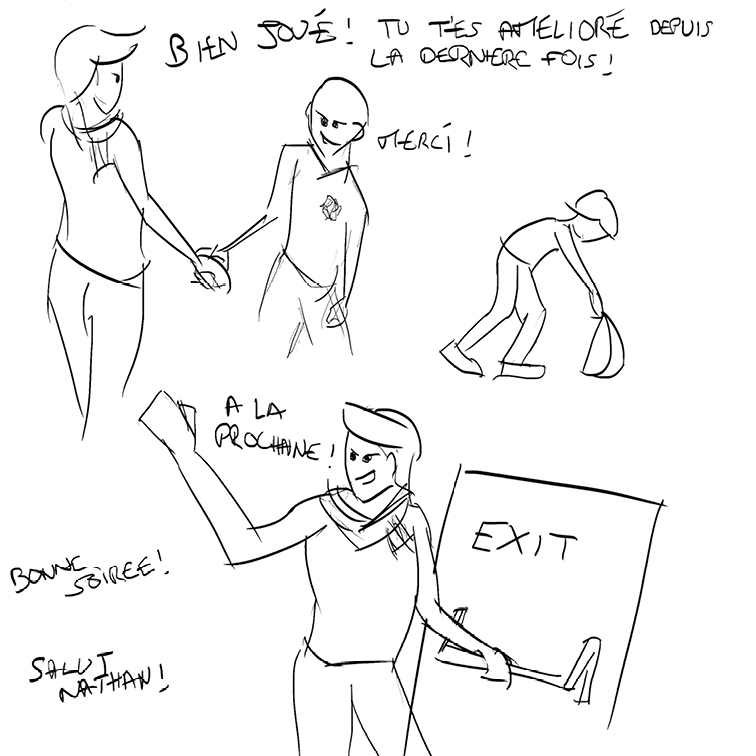 BIEN JOUÉ! TU T'ES AMÉLIORÉ DEPUIS
LA DERNIERE FOIS!
MERCI!
A LA
PROCHAINE!
EXIT
BONNE
SOIREE!
SALUT
NATHAN!